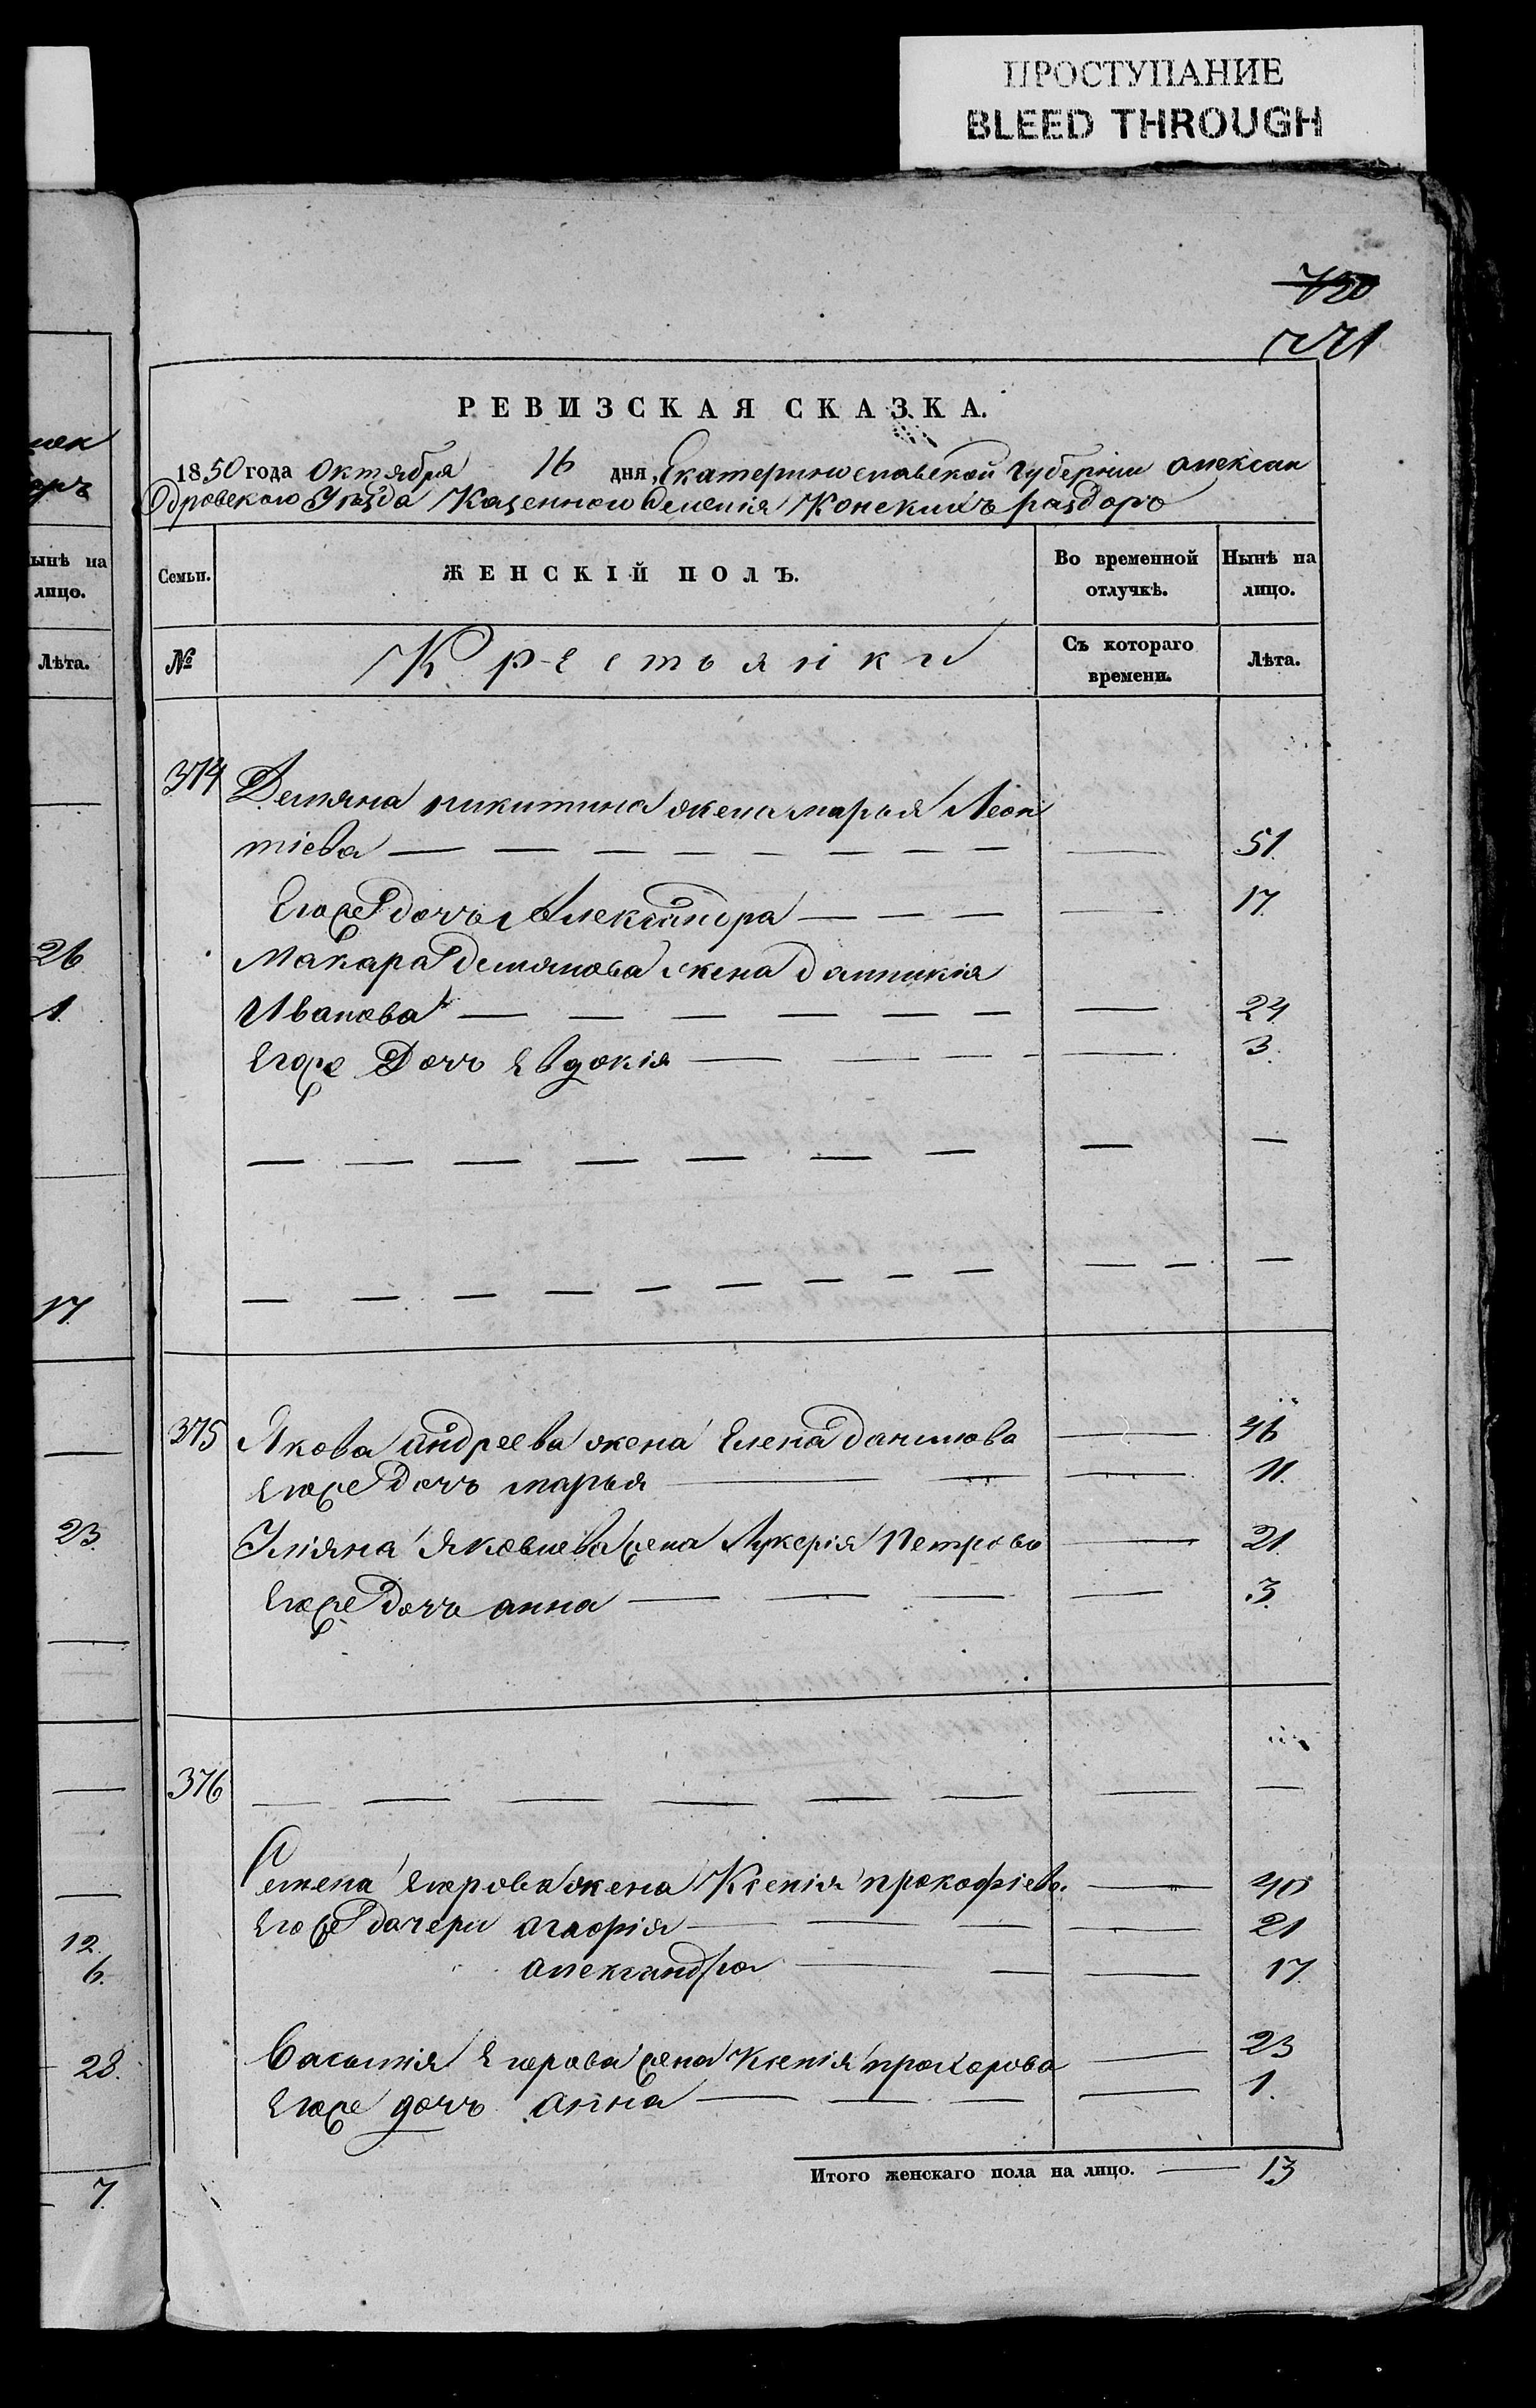 ПРОСТУПАНИЕ
BLEED THROUGH
720
721
РЕВИЗСКАЯ СКАЗКА.
1850 года Октября 16 дня, Екатеринославской Губерніи Алексан
дровского Уезда Казенного Селенія Конскихъ раздоръ
Семьи.
ЖЕНСКІЙ ПОЛЪ.
Во временной отлучкѣ.
Нынѣ на лицо.
№
Крестьянки
Съ котораго времени.
Лѣта.
374 Демяна никитина жена марья Леон
тіева 51.
Егоже дочь Александра 17.
Макара демянова жена домникія
Иванова 24
Егоже Дочь Евдокія 3.
375 Якова андреева жена Елена данилова 46
Егоже дочь марья 11.
Уліяна Яковлева жена Лукерія Петрова 21.
Егоже дочь анна 3.
376
Семена Егорова жена Ксенія прокофіева. 40
Егоже дочери агафія 21
александра 17.
Василія Егорова жена Ксенія прохорова 23
Егоже дочь анна 1.
Итого женскаго пола на лицо. 13
ынѣ на
лицо.
Лѣта.
26
1.
17.
23.
12.
6.
28.
7.